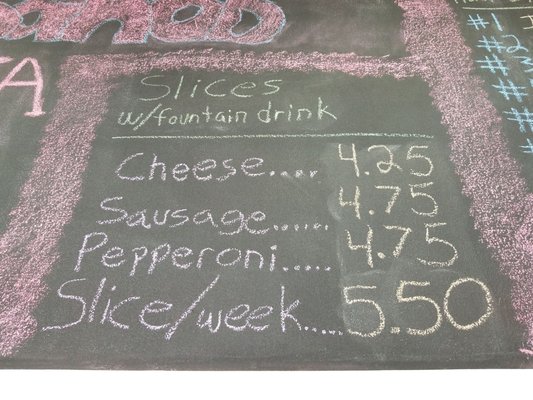 Slices
w/fountain drink
Cheese.... 4.25
Sausage...... 4.75
Pepperoni..... 4.75
Slice/week..... 5.50
#1
#2
#
#
#